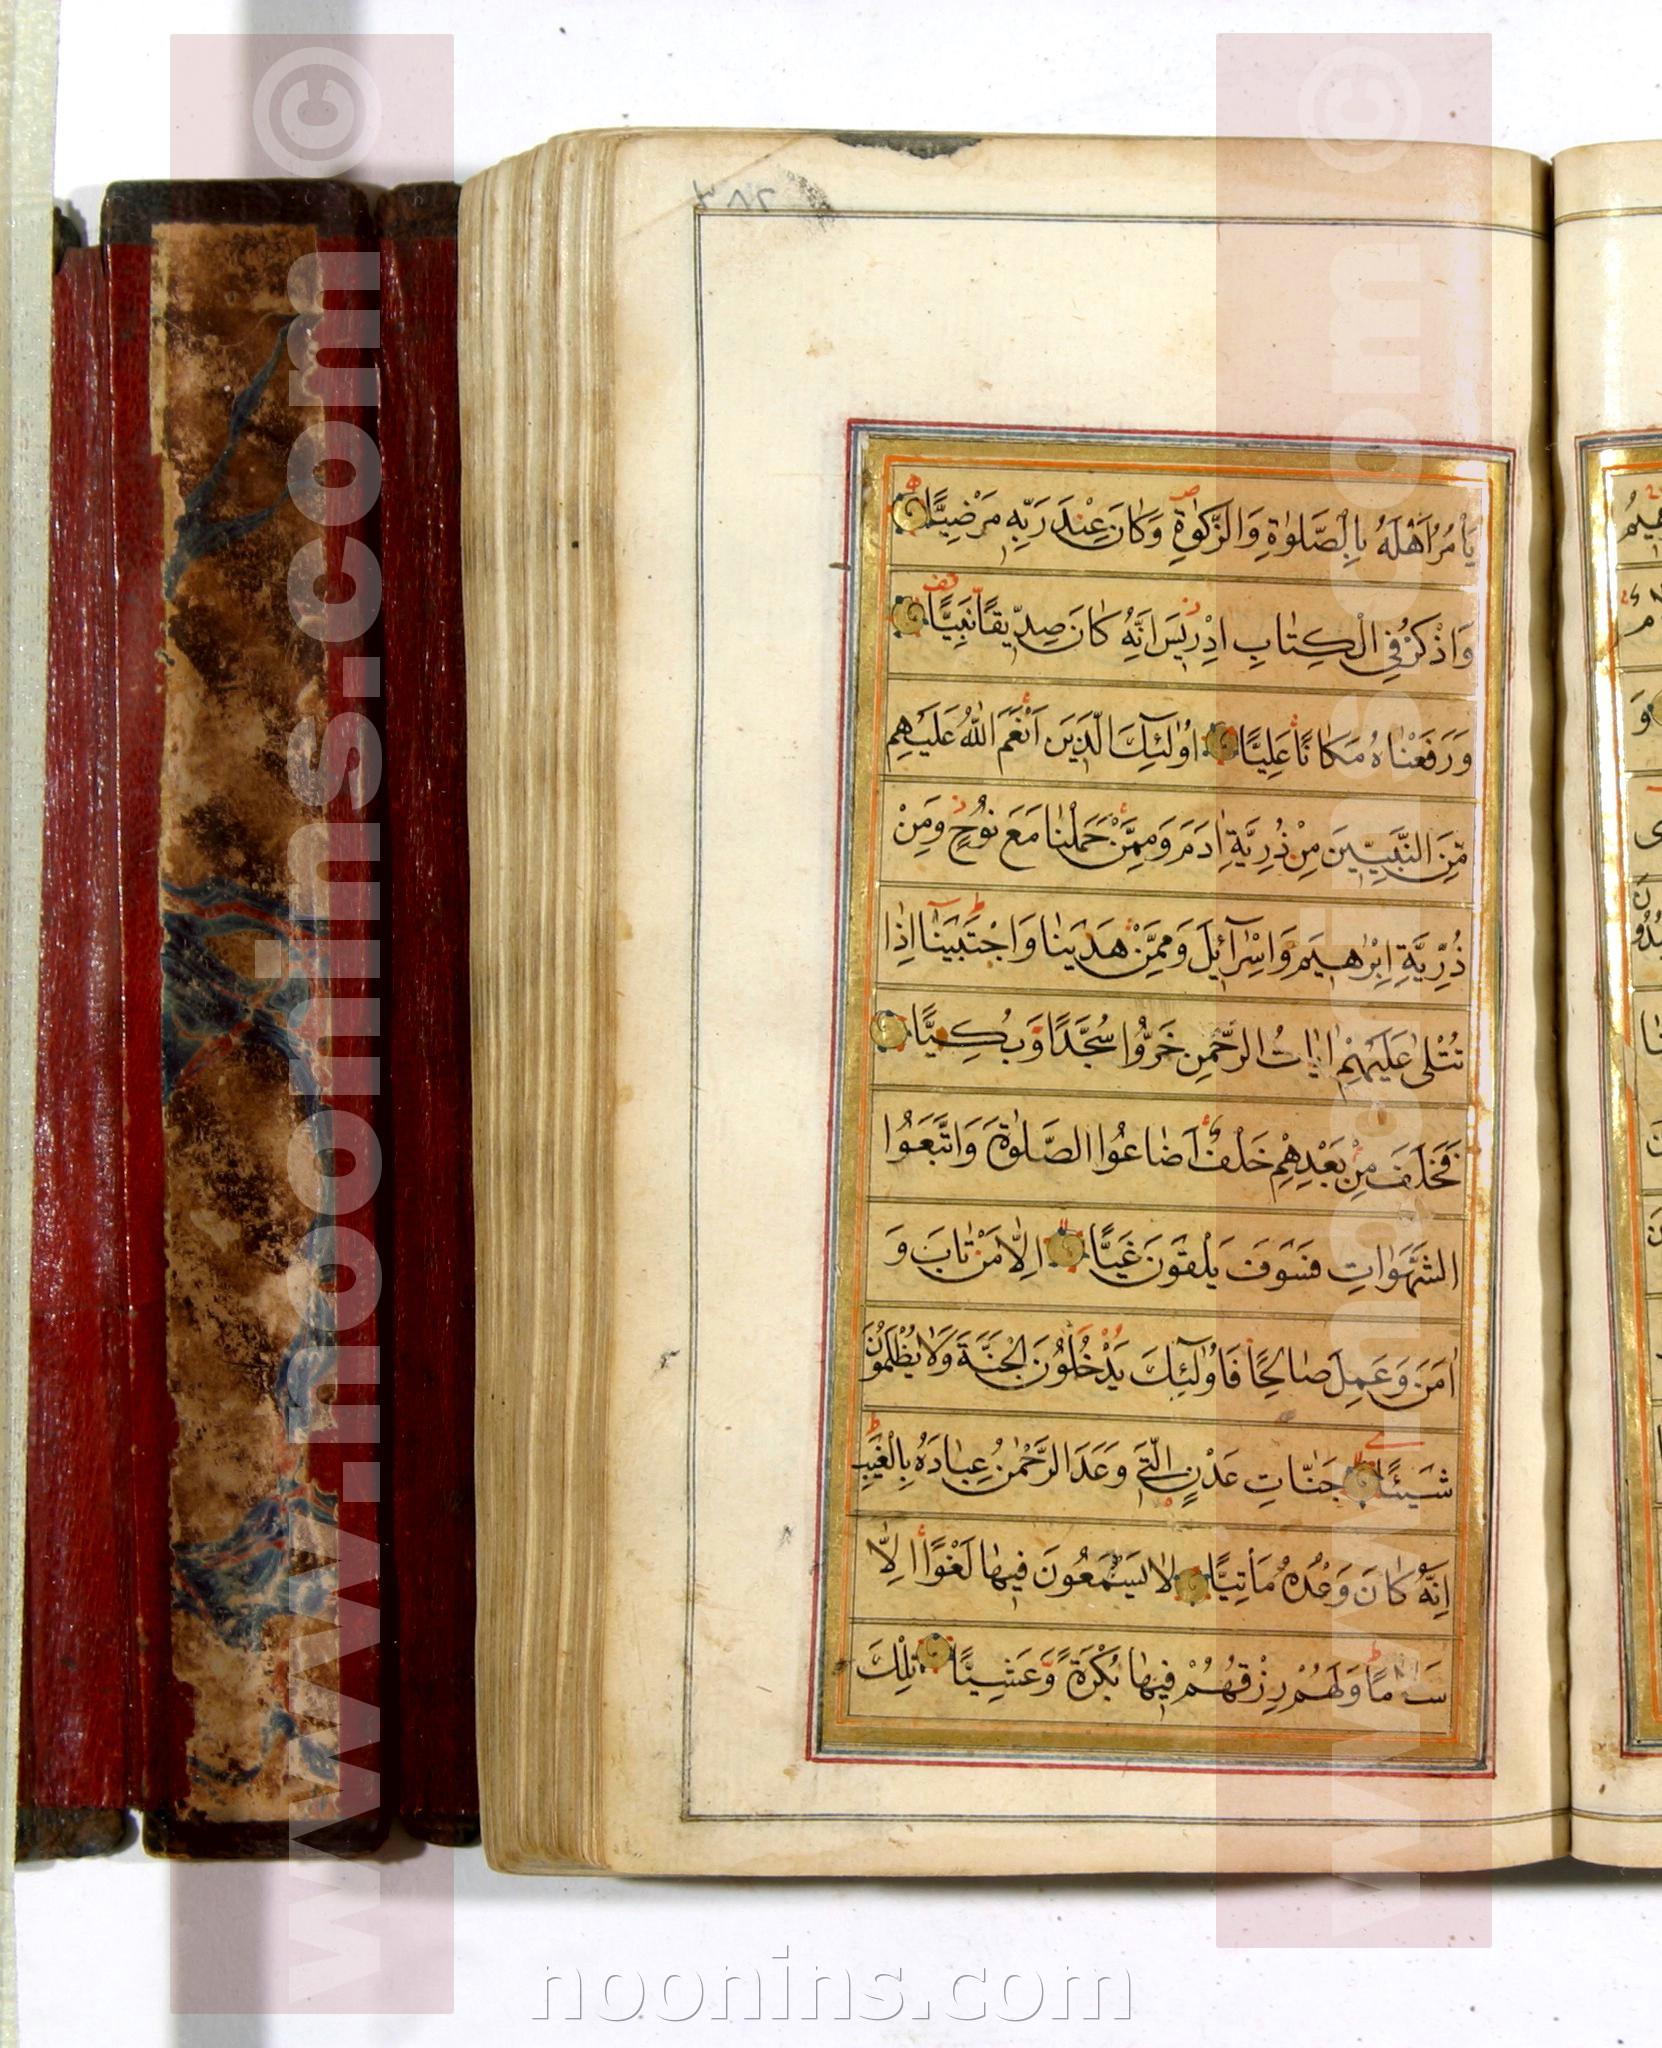 ٢٨٣
يَأْمُرُ اَهْلَهُ بِالصَّلٰوةِ وَالزَّكٰوةِ وَكَانَ عِنْدَ رَبِّهِ مَرْضِيًّا
وَاذْكُرْ فِي الْكِتٰابِ اِدْرِيسَ اِنَّهُ كٰانَ صِدِّيقًا نَبِيًّا
وَرَفَعْنٰاهُ مَكٰانًا عَلِيًّا اُولٰئِكَ الَّذِينَ اَنْعَمَ اللّٰهُ عَلَيْهِمْ
مِنَ النَّبِيِّينَ مِنْ ذُرِّيَّةِ اٰدَمَ وَمِمَّنْ حَمَلْنٰا مَعَ نُوحٍ وَمِنْ
ذُرِّيَّةِ اِبْرٰهِيمَ وَاِسْرٰٓائِلَ وَمِمَّنْ هَدَيْنٰا وَاجْتَبَيْنٰا اِذٰا
تُتْلٰى عَلَيْهِمْ اٰيٰاتُ الرَّحْمٰنِ خَرُّوا سُجَّدًا وَبُكِيًّا
فَخَلَفَ مِنْ بَعْدِهِمْ خَلْفٌ اَضٰاعُوا الصَّلٰوةَ وَاتَّبَعُوا
الشَّهَوٰاتِ فَسَوْفَ يَلْقَوْنَ غَيًّا اِلّٰا مَنْ تٰابَ وَ
اٰمَنَ وَعَمِلَ صٰالِحًا فَاُولٰئِكَ يَدْخُلُونَ الْجَنَّةَ وَلٰا يُظْلَمُونَ
شَيْئًا جَنّٰاتِ عَدْنٍ الَّتِي وَعَدَ الرَّحْمٰنُ عِبٰادَهُ بِالْغَيْبِ
اِنَّهُ كٰانَ وَعْدُهُ مَأْتِيًّا لٰا يَسْمَعُونَ فِيهٰا لَغْوًا اِلّٰا
سَلٰامًا وَلَهُمْ رِزْقُهُمْ فِيهٰا بُكْرَةً وَعَشِيًّا تِلْكَ
www.noonins.com ©
www.noonins.com ©
noonins.com